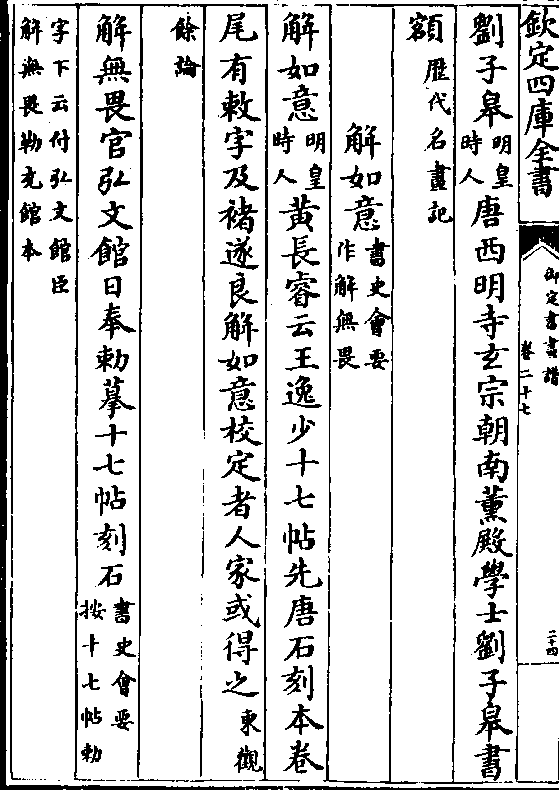 欽定四庫全書
御定書畫譜
卷二十七
二十四
劉子皋明皇時人唐西明寺玄宗朝南薫殿學士劉子皋書
額歴代名畫記
解如意書史會要作解無畏
解如意明皇時人黄長睿云王逸少十七帖先唐石刻本卷
尾有敕字及禇遂良解如意校定者人家或得之東觀
餘論
解無畏官弘文館日奉勅摹十七帖刻石書史會要按十七帖勅
字下云付弘文館臣解無畏勒充館本